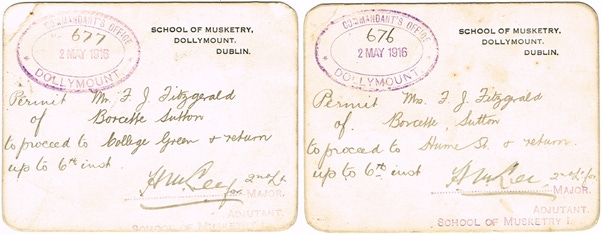 COMMANDANT'S OFFICE
677
2 MAY 1916
DOLLYMOUNT
SCHOOL OF MUSKETRY,
DOLLYMOUNT,
DUBLIN.
Permit Mr. F J. Fitzgerald
of Sutton
to proceed to College Green & return
up to 6th inst.
2nd Lt.
for MAJOR.
ADJUTANT.
SCHOOL OF MUSKETRY
COMMANDANT'S OFFICE
676
2 MAY 1916
DOLLYMOUNT
SCHOOL OF MUSKETRY,
DOLLYMOUNT.
DUBLIN.
Permit Mrs. F J. Fitzgerald
of Sutton
to proceed to Hume St. & return.
up to 6th inst
2nd Lt. for
MAJOR.
ADJUTANT.
SCHOOL OF MUSKETRY